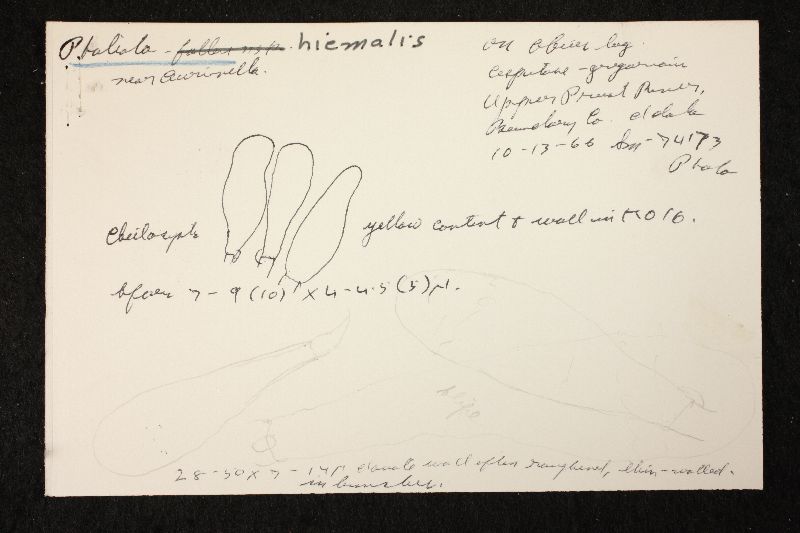 Pholiota - hiemalis
near aurivella.
on abies log.
cespitose - gregarious
Upper Priest River,
Boundary Co. Idaho
10-13-66 Sm-74173
Photo
yellow content & wall in KOH.
Spores 7-9 (10) x 4-4.5 (5) µ.
stipe
28-50 x 7-14 µ clavate wall often roughened, thin-walled.
in bunches.